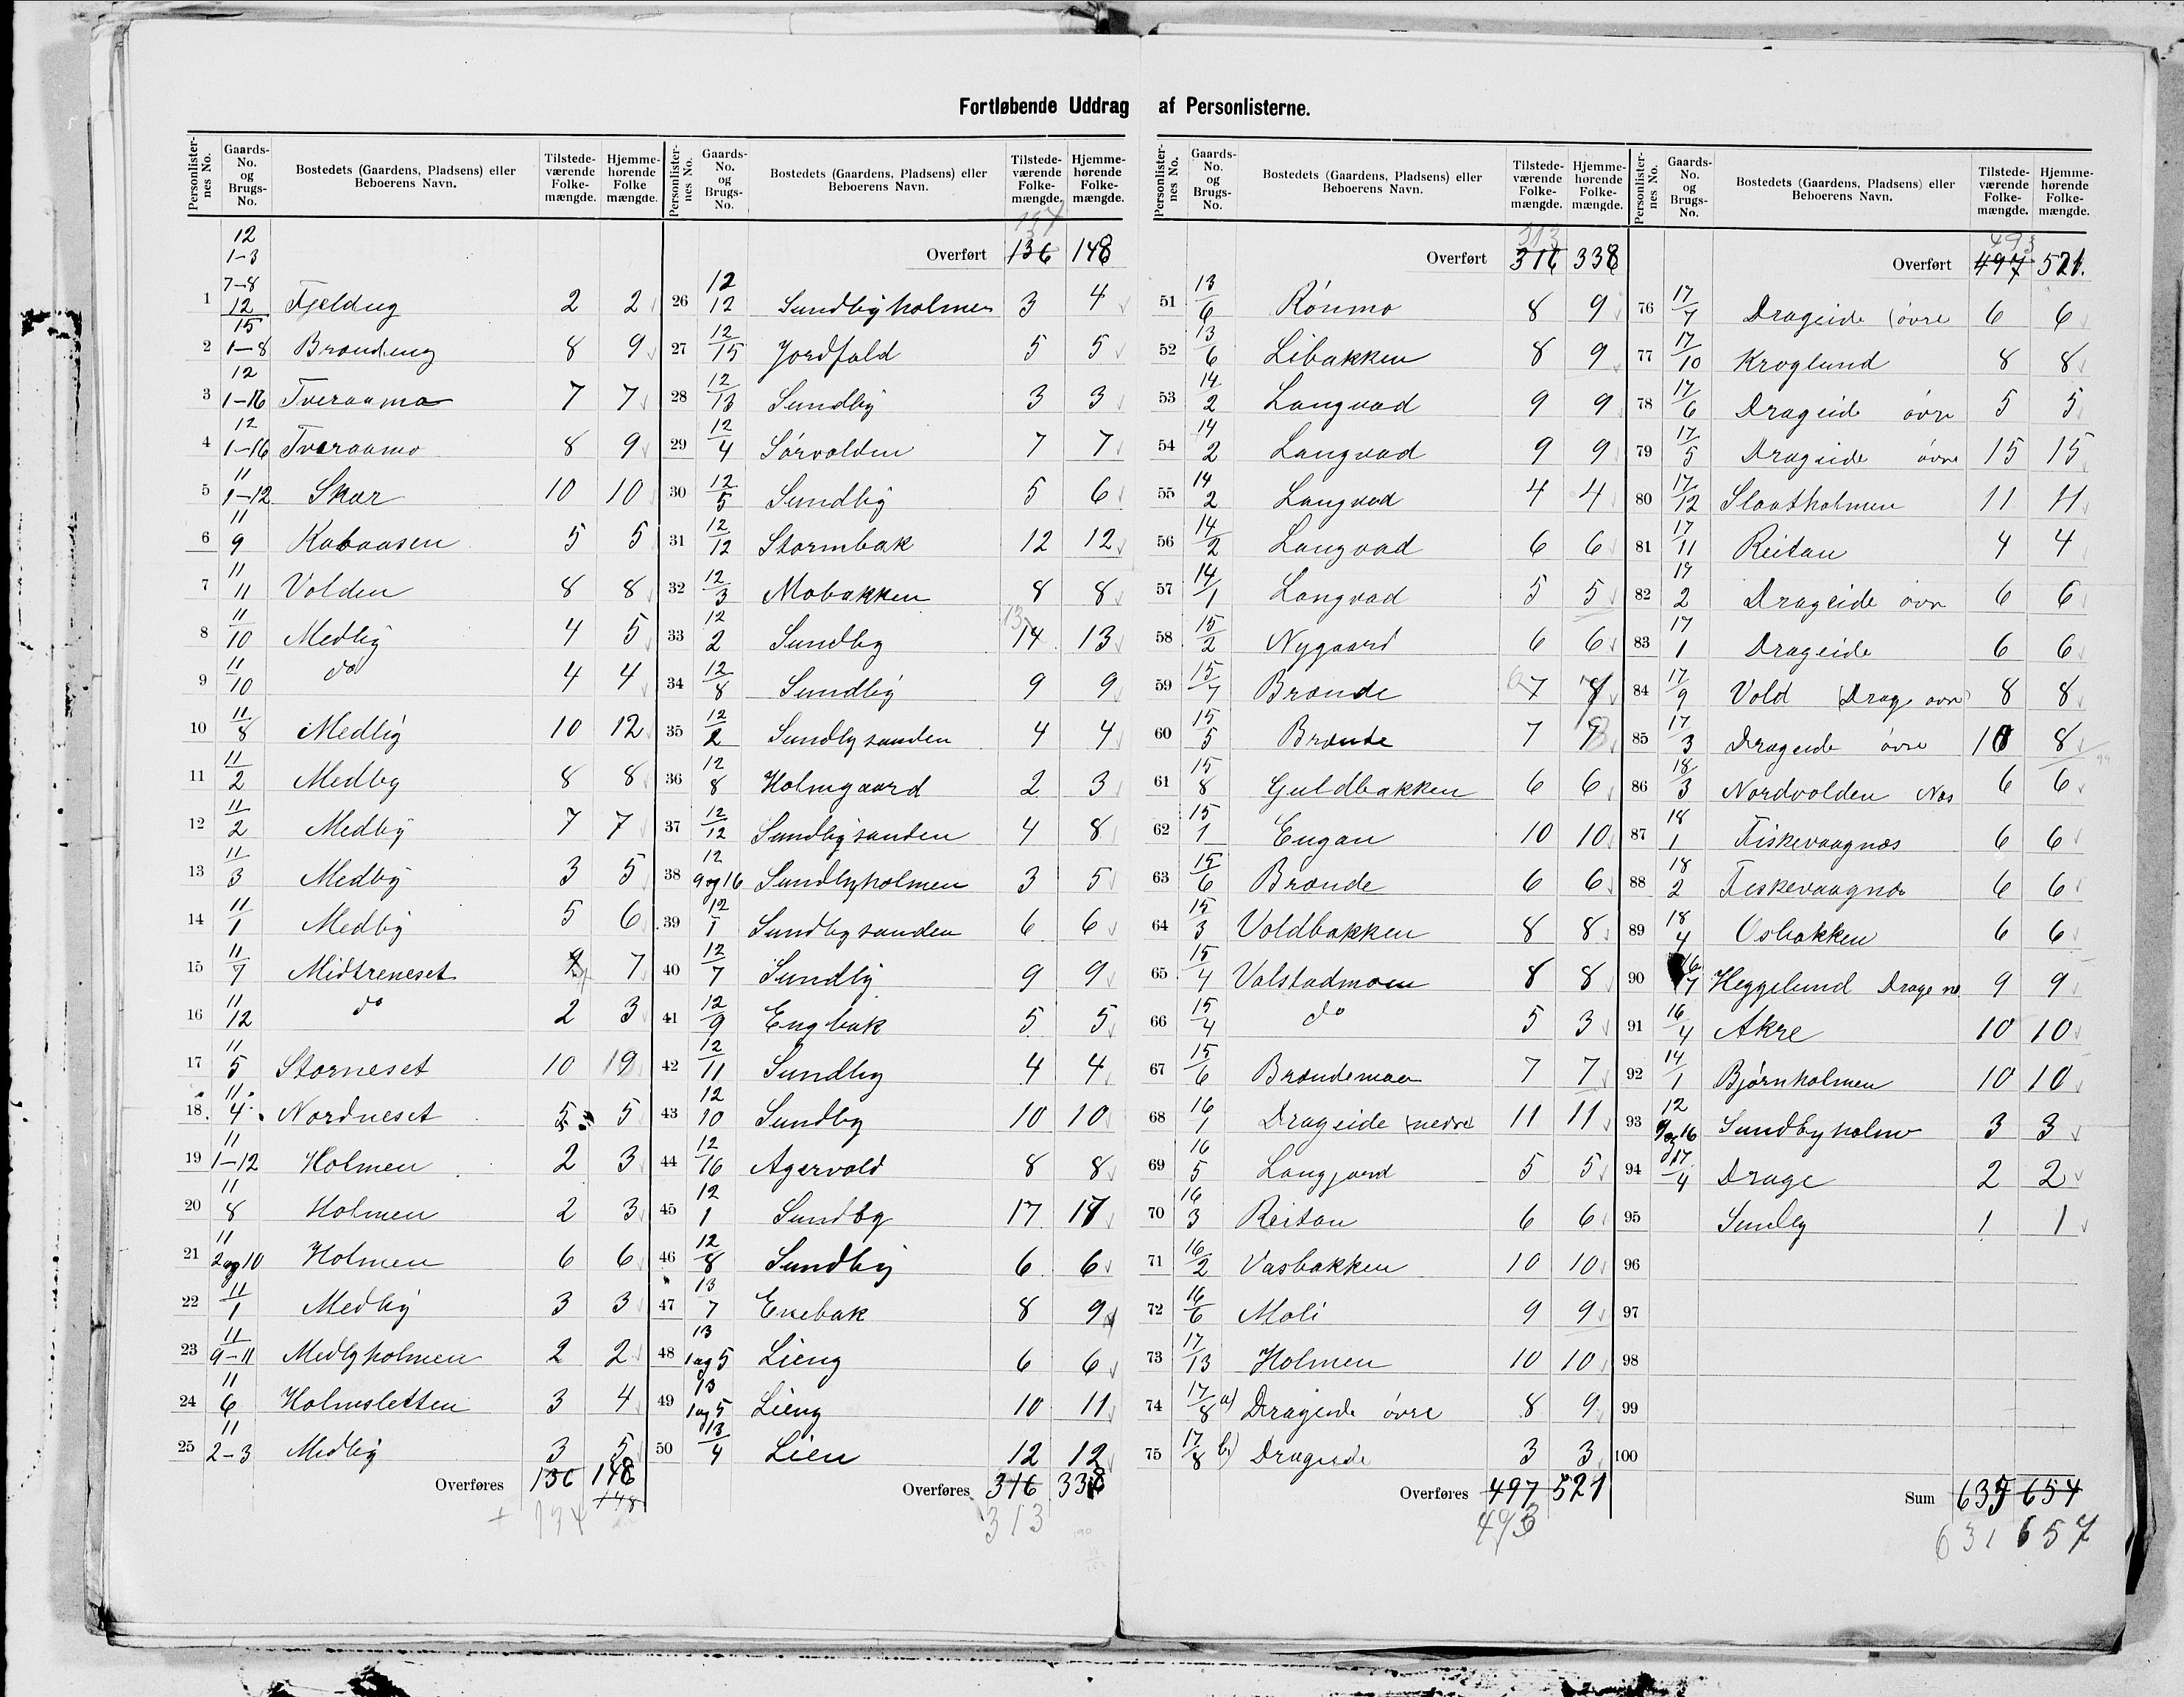 Fortløbende Uddrag af Personlisterne.
Personlisternes No. Gaards-No. og Brugs-No. Bostedets (Gaardens, Pladsens) eller Beboerens Navn. Tilstedeværende Folkemængde. Hjemmehørende Folkemængde.
1 12 1-3 7-8 12 15 Fjeldeng 2 2
2 1-8 Brændeng 8 9
3 12 1-16 Tveraamo 7 7
4 12 1-16 Tveraamo 8 9
5 11 1-12 Skar 10 10
6 11 9 Kobaasen 5 5
7 11 11 Volden 8 8
8 11/10 Medby 4 5
9 11/10 do 4 4
10 11/8 Medby 10 12
11 11/2 Medby 8 8
12 11/2 Medby 7 7
13 11/3 Medby 3 5
14 11/1 Medby 5 6
15 11/7 Midtreneset 7
16 11/12 do 2 3
17 11 5 Storneset 10 19
18 11 4 Nordneset 5 5
19 11 1-12 Holmen 2 3
20 11 8 Holmen 2 3
21 11 2og10 Holmen 6 6
22 11/1 Medby 3 3
23 11 9-11 Medbyholmen 2 2
24 11 6 Holmsletten 3 4
25 11 2-3 Medby 3 5
Overføres 136 148
148
134
Overført 136 148
26 12 12 Sundbyholmen 3 4
27 12/15 Jordfald 5 5
28 12/13 Sundby 3 3
29 12/4 Sørvolden 7 7
30 12/5 Sundby 5 6
31 12/12 Stormbak 12 12
32 12/3 Mobakken 8 8
33 12 2 Sundby 13 14 13
34 12/8 Sundby 9 9
35 12/2 Sundbysanden 4 4
36 12 8 Holmgaard 2 3
37 12/12 Sundbysanden 4 8
38 12 9og16 Sundbyholmen 3 5
39 12 1 Sundbysanden 6 6
40 12/7 Sundby 9 9
41 12/9 Engbak 5 5
42 12/11 Sundby 4 4
43 12 10 Sundby 10 10
44 12/16 Agervold 8 8
45 12 1 Sundby 17 17
46 12/8 Sundby 6 6
47 13 7 Enebak 8 9
48 13 1og5 Lieng 6 6
49 13 1og5 Lieng 10 11
50 13/4 Lien 12 12
Overføres 316 338
313
Overført 313 316 338
51 13/6 Rønmo 8 9
52 13/6 Libakken 8 9
53 14/2 Langvad 9 9
54 14 2 Langvad 9 9
55 14 2 Langvad 4 4
56 14/2 Langvad 6 6
57 14/1 Langvad 5 5
58 15/2 Nygaard 6 6
59 15/7 Brænde 6 7
60 15/5 Brænde 7
61 15 8 Guldbakken 6 6
62 15 1 Engan 10 10
63 15/6 Brænde 6 6
64 15 3 Voldbakken 8 8
65 15/4 Valstadmoen 8 8
66 15/4 do 5 3
67 15/6 Brændemoen 7 7
68 16 1 Drageide (nedre) 11 11
69 16 5 Langjord 5 5
70 16 3 Reitan 6 6
71 16/2 Vasbakken 10 10
72 16/6 Moli 9 9
73 17/13 Holmen 10 10
74 17/8 a) Drageide øvre 8 9
75 17/8 b) Drageide 3 3
Overføres 497 521
493
Overført 493 497 521.
76 17/7 Drageide (øvre 6 6
77 17/10 Kroglund 8 8
78 17/6 Drageide øvre 5 5
79 17/5 Drageide øvre 15 15
80 17/12 Slaatholmen 11 11
81 17/11 Reitan 4 4
82 17 2 Drageide øvre 6 6
83 17 1 Drageide 6 6
84 17/9 Vold (Drag. øvre) 8 8
85 17/3 Drageide øvre 8
86 18/3 Nordvolden Næs 6 6
87 18 1 Fiskevaagnæs 6 6
88 18 2 Fiskevaagnæs 6 6
89 18/4 Osbakken 6 6
90 16/7 Heggelund Drage ne 9 9
91 16/4 Akre 10 10
92 14/1 Bjørnholmen 10 10
93 12 9og16 Sundbyholm 3 3
94 17/4 Drage 2 2
95 Sundby 1 1
96
97
98
99
100
Sum 635 654
631 657